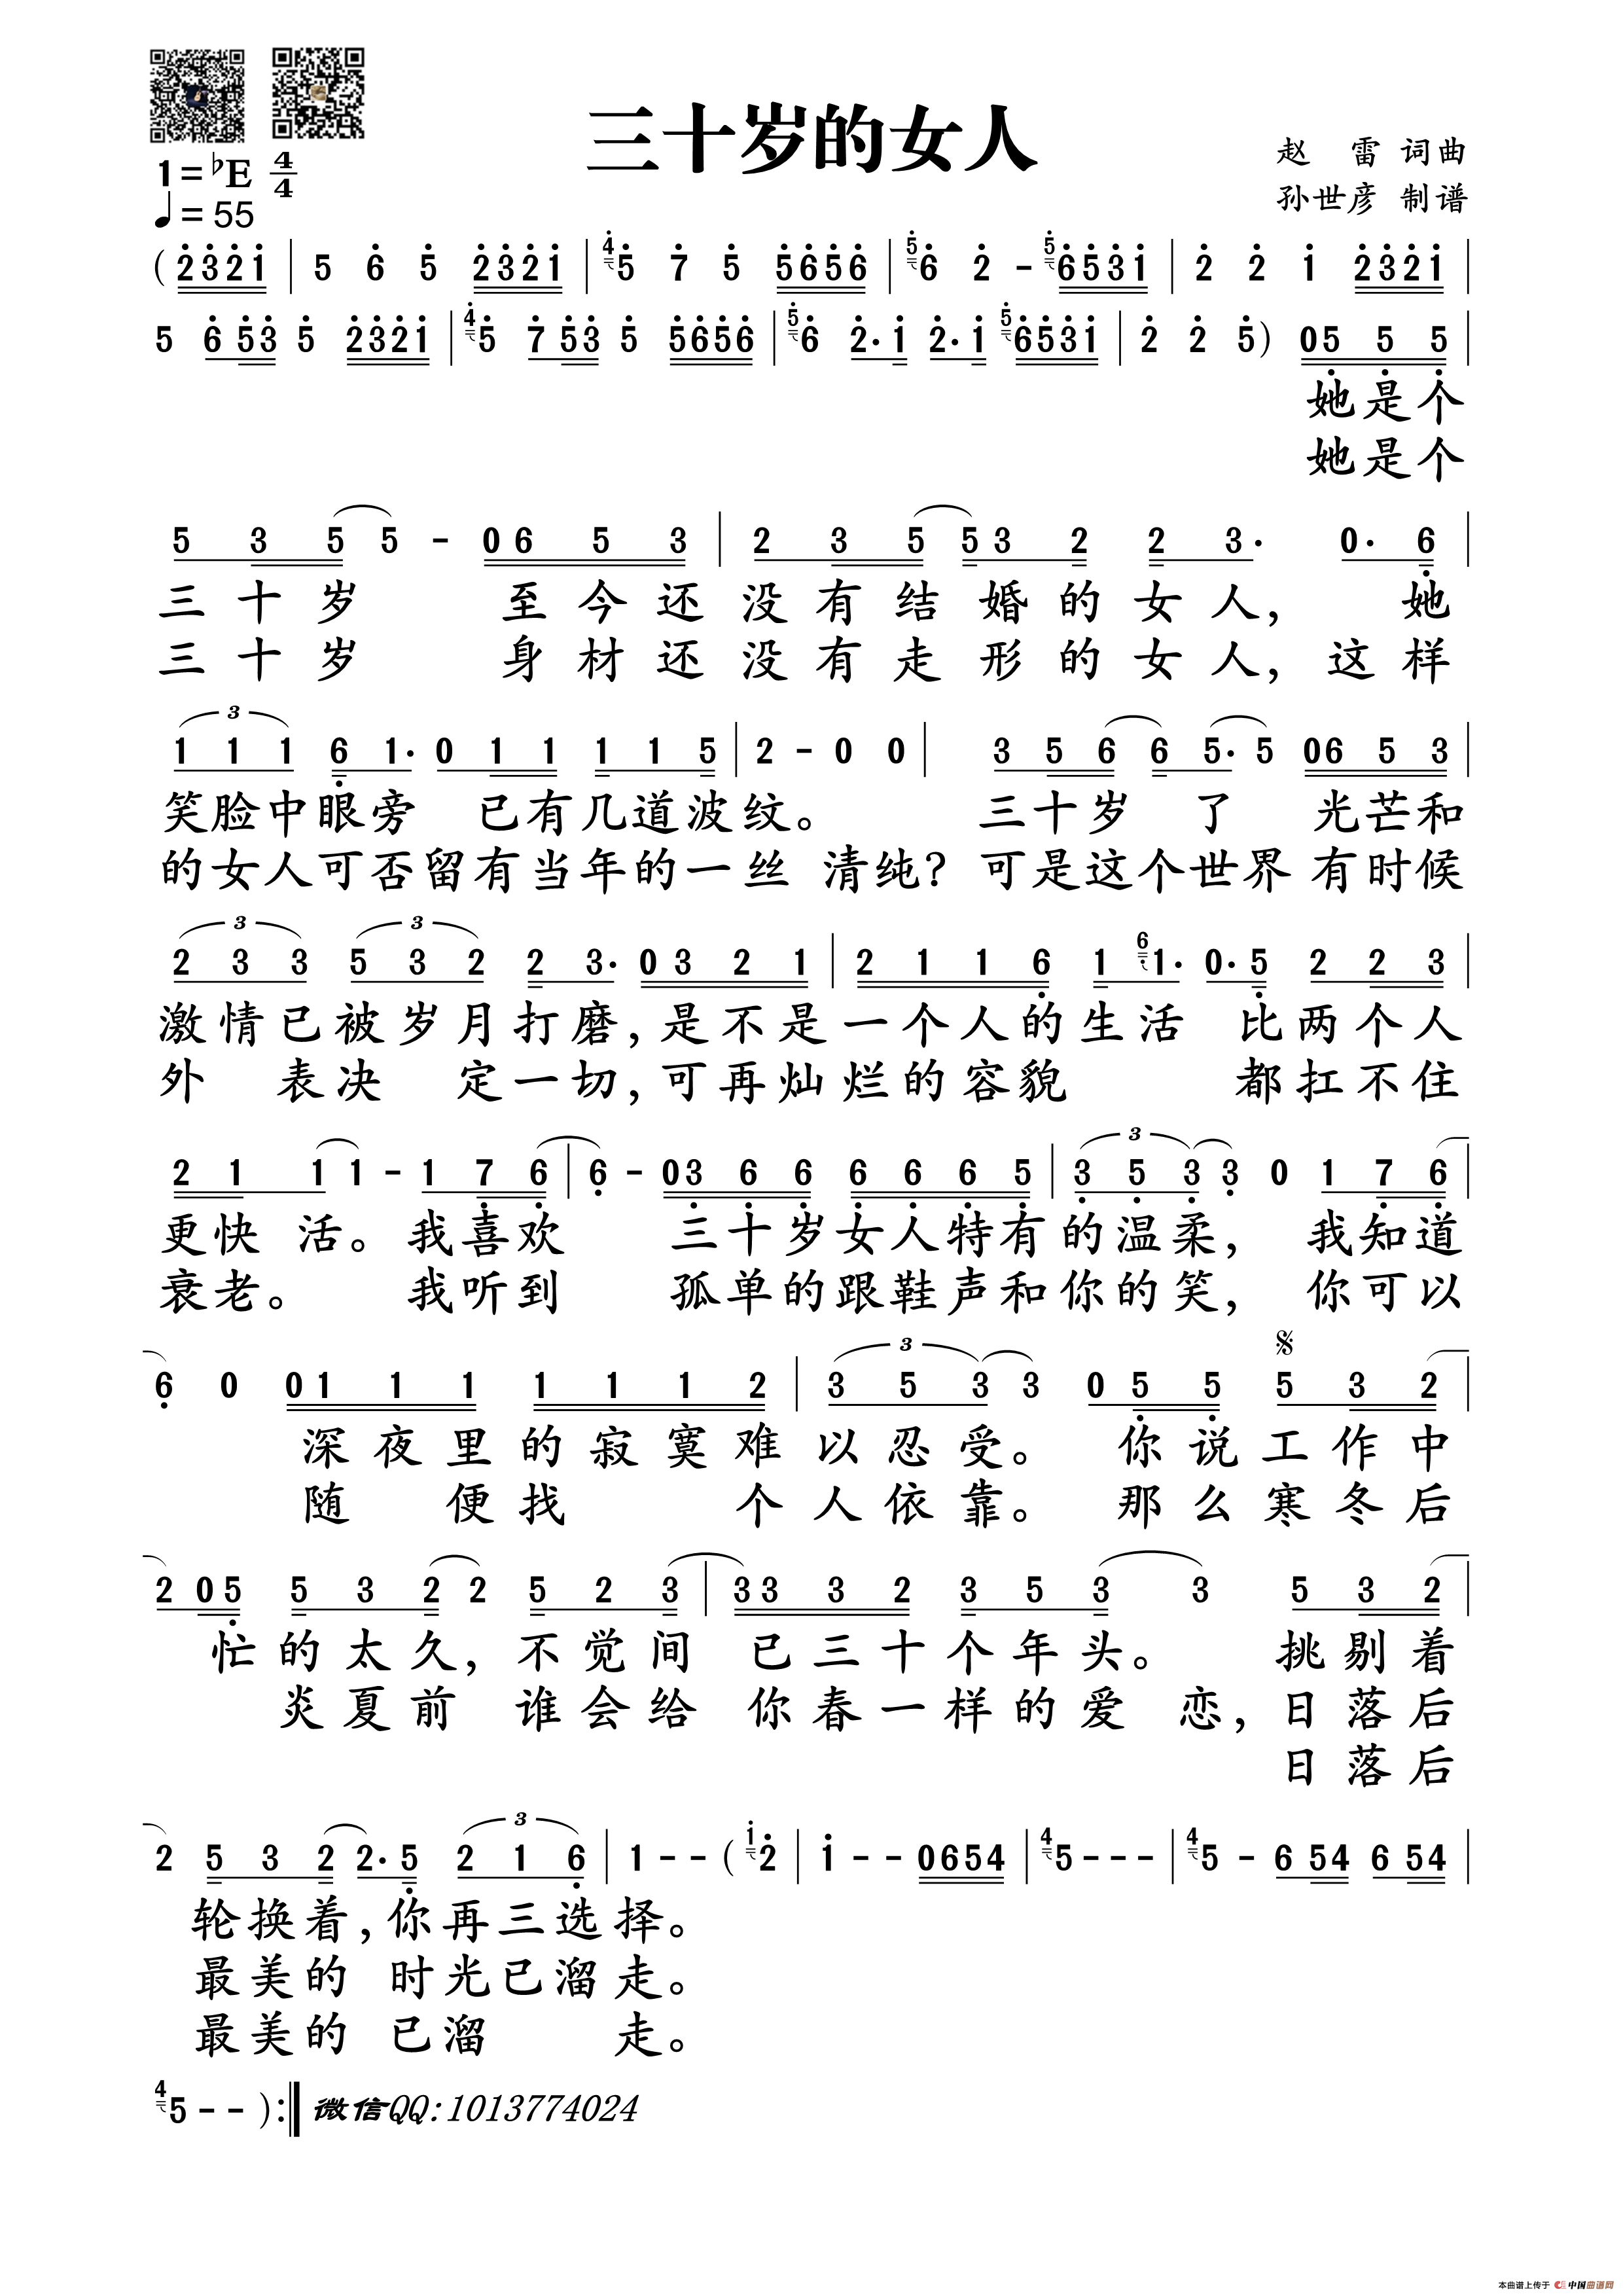 三十岁的女人
1=♭E 4/4
♩=55
赵 雷 词曲
孙世彦 制谱
( 2 3 2 1 | 5 6 5 2 3 2 1 | 4 5 7 5 5 6 5 6 | 5 6 2 - 5 6 5 3 1 | 2 2 1 2 3 2 1 |
5 6 5 3 5 2 3 2 1 | 4 5 7 5 3 5 5 6 5 6 | 5 6 2· 1 2· 1 5 6 5 3 1 | 2 2 5 ) 0 5 5 5 |
她是个
她是个
5 3 5 5 - 0 6 5 3 | 2 3 5 5 3 2 2 3· 0· 6 |
三十岁 至今还没有结婚的女人, 她
三十岁 身材还没有走形的女人, 这样
3
1 1 1 6 1· 0 1 1 1 1 5 | 2 - 0 0 | 3 5 6 6 5· 5 0 6 5 3 |
笑脸中眼旁 已有几道波纹。 三十岁 了 光芒和
的女人可否留有当年的一丝 清纯? 可是这个世界有时候
3 3
2 3 3 5 3 2 2 3· 0 3 2 1 | 2 1 1 6 1 6 1· 0· 5 2 2 3 |
激情已被岁月打磨, 是不是一个人的生活 比两个人
外 表决 定一切, 可再灿烂的容貌 都扛不住
3
2 1 1 1 - 1 7 6 | 6 - 0 3 6 6 6 6 6 5 | 3 5 3 3 0 1 7 6 |
更快 活。 我喜欢 三十岁女人特有的温柔, 我知道
衰老。 我听到 孤单的跟鞋声和你的笑, 你可以
3 𝄋
6 0 0 1 1 1 1 1 1 2 | 3 5 3 3 0 5 5 5 3 2 |
深夜里的寂寞难以忍受。 你说工作中
随 便找 个人依靠。 那么寒冬后
2 0 5 5 3 2 2 5 2 3 | 3 3 3 2 3 5 3 3 5 3 2 |
忙的太久, 不觉间 已三十个年头。 挑剔着
炎夏前 谁会给 你春一样的爱 恋, 日落后
日落后
3
2 5 3 2 2· 5 2 1 6 | 1 - - ( 1 2 | 1 - - 0 6 5 4 | 4 5 - - - | 4 5 - 6 5 4 6 5 4 |
轮换着, 你再三选择。
最美的 时光已溜走。
最美的 已溜 走。
4 5 - - ) :‖ 微信QQ:1013774024
本曲谱上传于 中国曲谱网